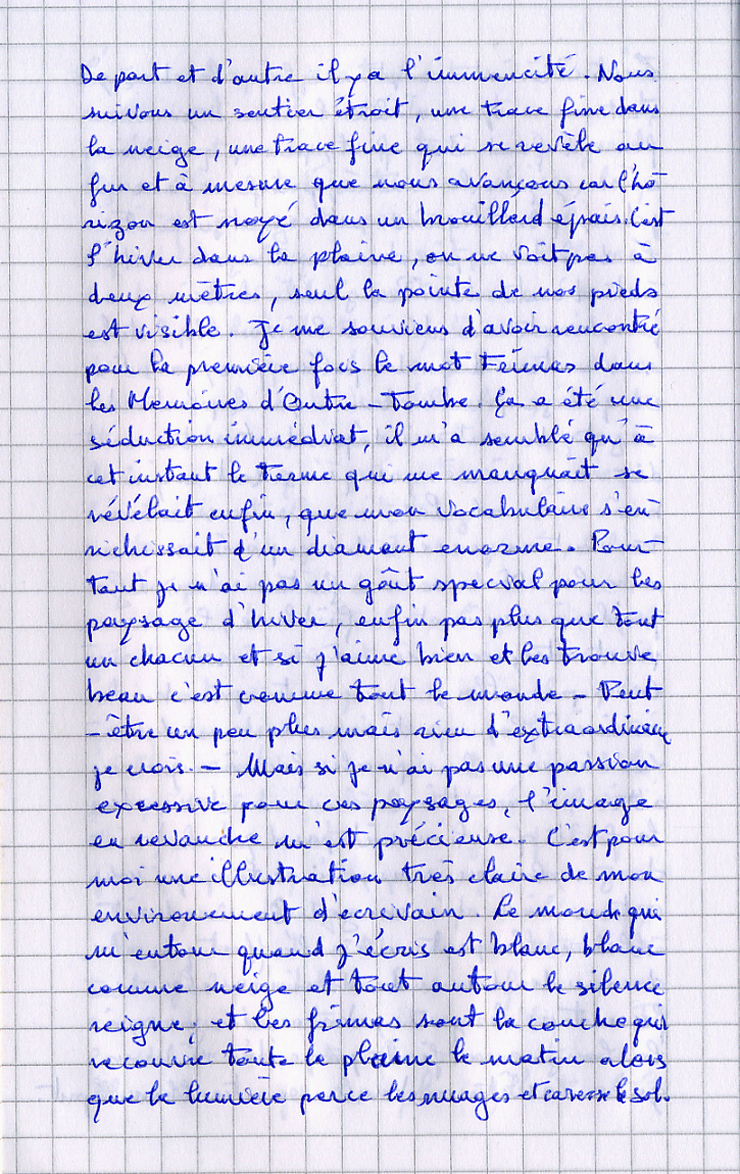 De part et d'autre il y a l'immencité. Nous
suivons un sentier étroit, une trace fine dans
la neige, une trace fine qui se revèle au
fur et à mesure que nous avançons car l'ho-
rizon est noyé dans un brouillard épais. C'est
l'hiver dans la plaine, on ne voit pas à
deux mètres, seul la pointe de nos pieds
est visible. Je me souviens d'avoir rencontré
pour la première fois le mot Frimas dans
les Memoires d'Outre-Tombe. Ça a été une
séduction immédiat, il m'a semblé qu'à
cet instant le terme qui me manquait se
révélait enfin, que mon vocabulaire s'en-
richissait d'un diamant enorme. Pour-
tant je n'ai pas un goût special pour les
paysage d'hiver, enfin pas plus que tout
un chacun et si j'aime bien et les trouve
beau c'est comme tout le monde - Peut
-être un peu plus mais rien d'extraordinaire
je crois. - Mais si je n'ai pas une passion
excessive pour ces paysages, l'image
en revanche m'est précieuse. C'est pour
moi une illustration très claire de mon
environnement d'ecrivain. Le monde qui
m'entoure quand j'écris est blanc, blanc
comme neige et tout autour le silence
reigne, et les frimas sont la couche qui
recouvre toute la plaine le matin alors
que la lumière perce les nuages et caresse le sol.